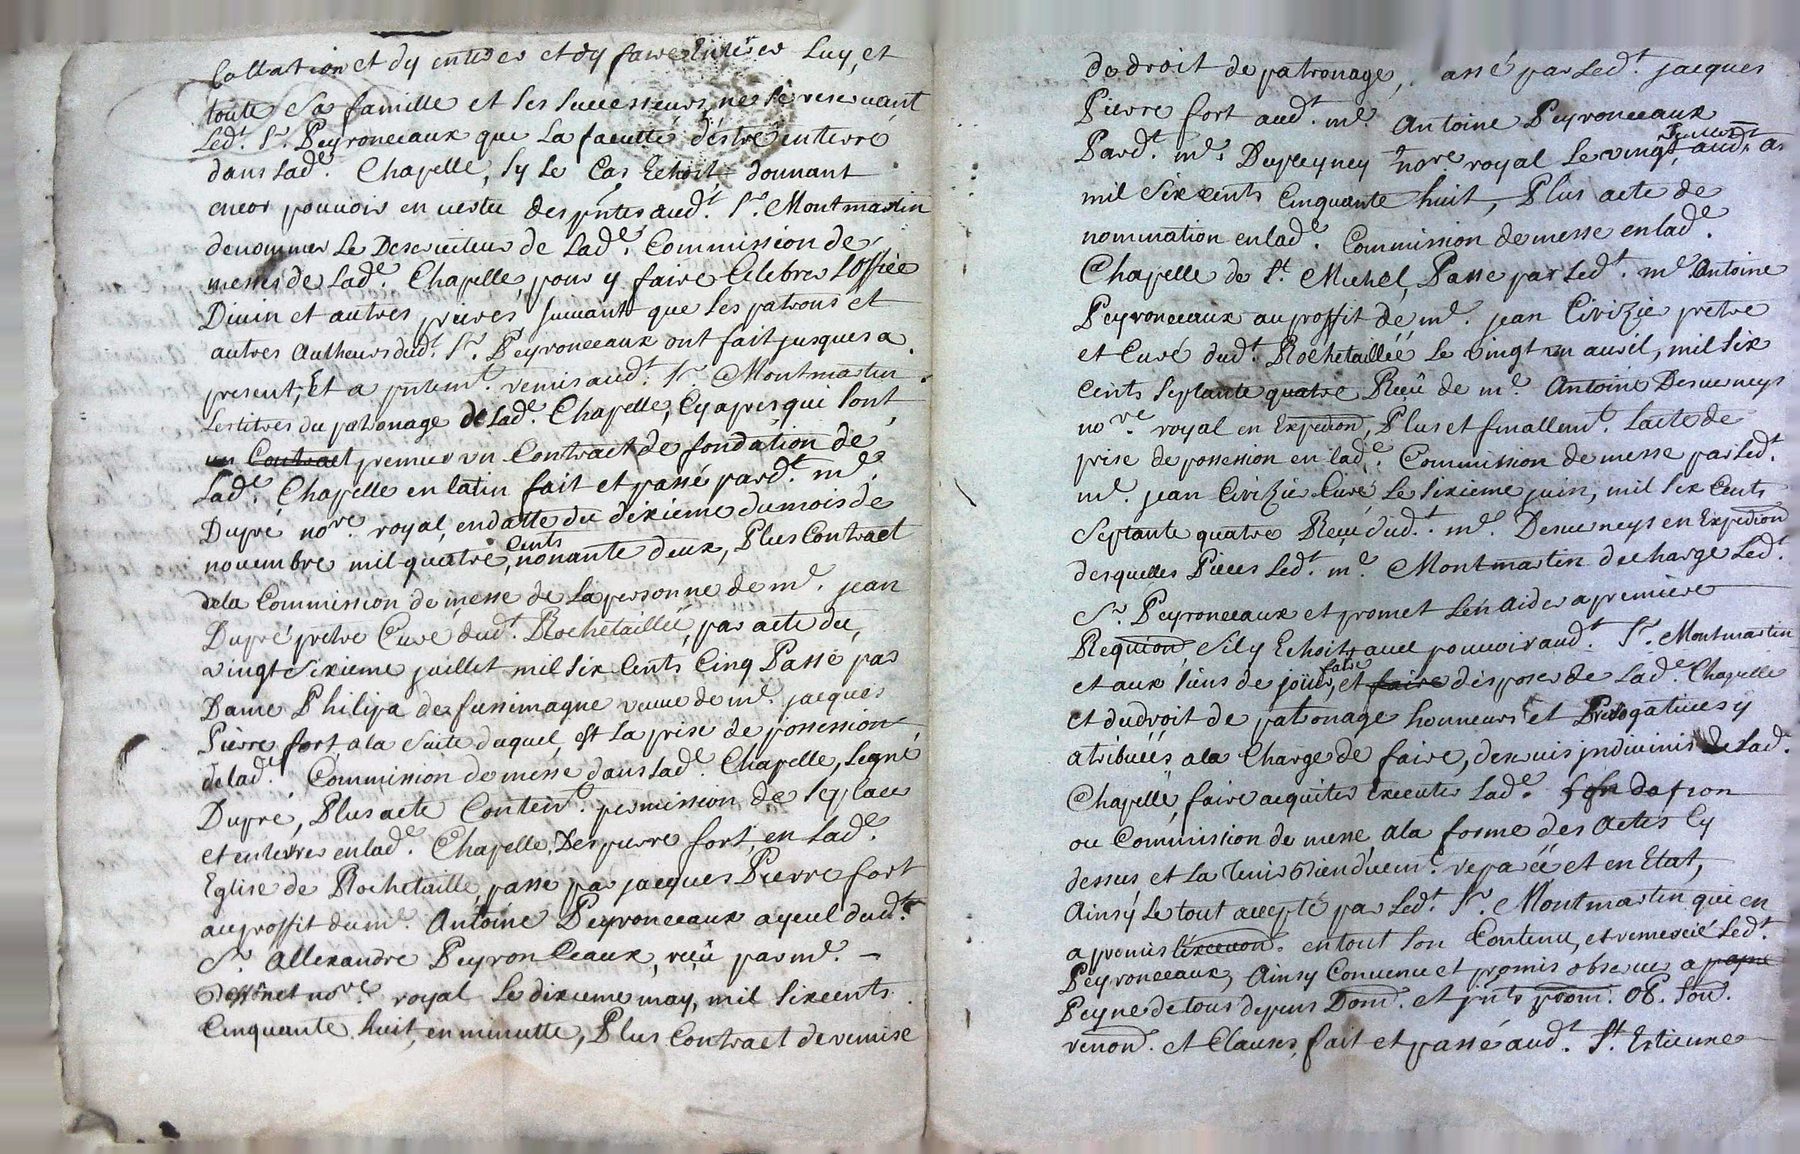 Collation et dy entrer et dy faire Entrer Luy, et
toute sa famille et ses successeurs, ne se reservant
Led.t S.r Peyronceaux que La faculté destre enterré
dans Lad.e Chapelle, Sy Le Cas Echoit donnant
encor pouvoir en vertu des pntes aud.t S.r Montmartin
denommer Le Deserviteur de Lad.e Commission de
messes de Lad.e Chapelle, pour y faire Celebrer L'office
Divin et autres prieres suivant que Ses patrons et
autres autheurs dud.t S.r Peyronceaux ont fait jusques a
present; Et a pntem.t remis aud.t S.r Montmartin
Les titres du patronage de Lad.e Chapelle, Cy apres qui sont
un Contract premier un Contract de fondation de
Lad.e Chapelle en latin fait et passé pard.t m.e
Dupré no.re royal, en datte du dixieme du mois de
novembre mil quatre cents nonante deux, Plus Contract
de la Commission de messe de La personne de m.e jean
Dupré pretre Curé dud.t Rochetaillée, par acte du
vingt sixieme juillet mil six Cents Cinq Passé par
Dame Philipa de fussimagne veuve de m.e jacques
Pierre fort, a la suite duquel est La prise de possession
de lad.e Commission de messe dans Lad.e Chapelle, Signé
Dupré, Plus acte Conten.t permission de Se placer
et enterrer en lad.e Chapelle, Des pierre fort, en Lad.e
Eglise de Rochetaillé, passé par jacques Pierre fort
au proffit du m.e Antoine Peyronceaux ayeul dud.t
S.r allexandre Peyronceaux, reçû par m.e
no.re royal Le dixieme may, mil sixcents
Cinquante huit, en minutte, Plus Contract de remise
de droit de patronage, assé par Led.t jacques
Pierre fort aud.t m.e Antoine Peyronceaux
Pard.t m.e Dupleyney no.re royal Le vingt aud.t an
mil six cents Cinquante huit, Plus acte de
nomination en lad.e Commission de messe en lad.e
Chapelle de S.t Michel, Passé par Led.t m.e Antoine
Peyronceaux au proffit de m.e jean Civizie pretre
et Curé dud.t Rochetaillée Le vingt un avril, mil six
Cents Septante quatre Reçû de m.e Antoine Desverneys
no.re royal en Expedion, Plus et finallem.t Lacte de
prise de possession en lad.e Commission de messe par Led.t
m.e jean Civizie Curé Le sixieme juin, mil six Cents
Septante quatre Reçû dud.t m.e Desverneys en Expedion
desquelles Pieces Led.t m.e Montmartin decharge Led.t
S.r Peyronceaux et promet Len aider a premiere
Requion, sil y Echoit, avec pouvoir aud.t S.r Montmartin
et aux siens de joüir, et faire faire disposer de Lad.e Chapelle
et dudroit de patronage honneurs et Prerogatives y
atribuées a la Charge de faire, deservir jndivinis de Lad.e
Chapelle, faire acquitter Executer Lad.e fondation
ou Commission de messe, a la forme des actes Cy
dessus et La tenir bienduem.t reparée et en Etat,
Ainsy Le tout accepté par Led.t S.r Montmartin qui en
a promis Lexecuon. en tout Son Contenu, et remercié Led.t
Peyronceaux, Ainsy Convenu et promis observer a payne
Peyne de tous depens Dom. et jnts pnom. OB. Sou.
renon. et Clauses, fait et passé aud.t S.t Estienne